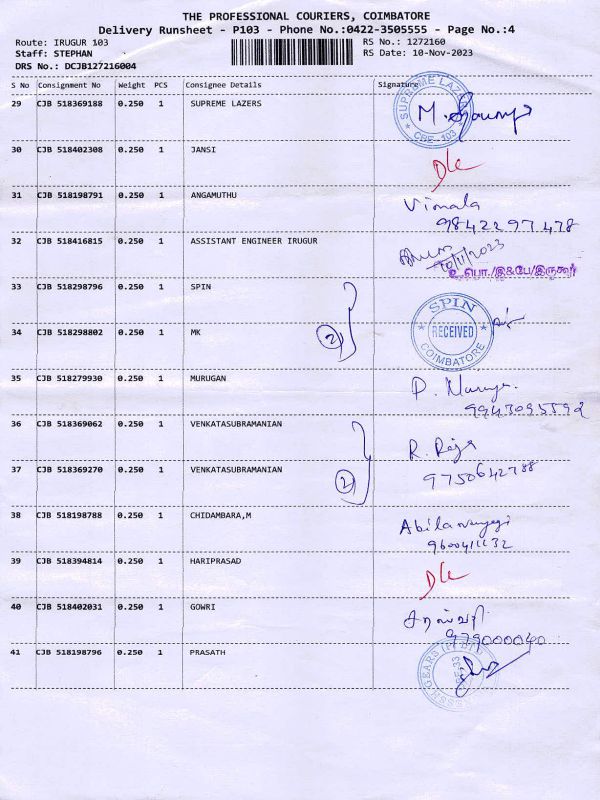 THE PROFESSIONAL COURIERS, COIMBATORE
Delivery Runsheet - P103 - Phone No.:0422-3505555 - Page No.:4
Route: IRUGUR 103 RS No.: 1272160
Staff: STEPHAN RS Date: 10-Nov-2023
DRS No.: DCJB127216004
S No Consignment No Weight PCS Consignee Details Signature
29 CJB 518369188 0.250 1 SUPREME LAZERS
SUPREME LAZERS
CBE - 103
30 CJB 518402308 0.250 1 JANSI
DLC
31 CJB 518198791 0.250 1 ANGAMUTHU Vimala
9842297478
32 CJB 518416815 0.250 1 ASSISTANT ENGINEER IRUGUR
10/11/2023
உ.பொ./இ&பே/இருகூர்
33 CJB 518298796 0.250 1 SPIN
SPIN
RECEIVED
COIMBATORE
2
34 CJB 518298802 0.250 1 MK
35 CJB 518279930 0.250 1 MURUGAN
9943095592
36 CJB 518369062 0.250 1 VENKATASUBRAMANIAN
R. Raja
9750642788
2
37 CJB 518369270 0.250 1 VENKATASUBRAMANIAN
38 CJB 518198788 0.250 1 CHIDAMBARA,M
9600411132
39 CJB 518394814 0.250 1 HARIPRASAD
DLC
40 CJB 518402031 0.250 1 GOWRI
979000040
41 CJB 518198796 0.250 1 PRASATH
GEARS (P)